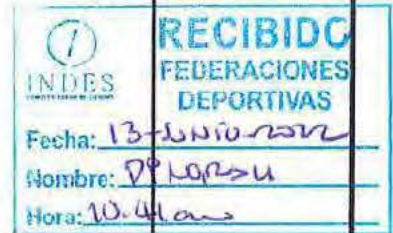 RECIBIDO
FEDERACIONES
INDES
DEPORTIVAS
Fecha: 13-Junio-2022
Nombre:
Hora: 10:41am